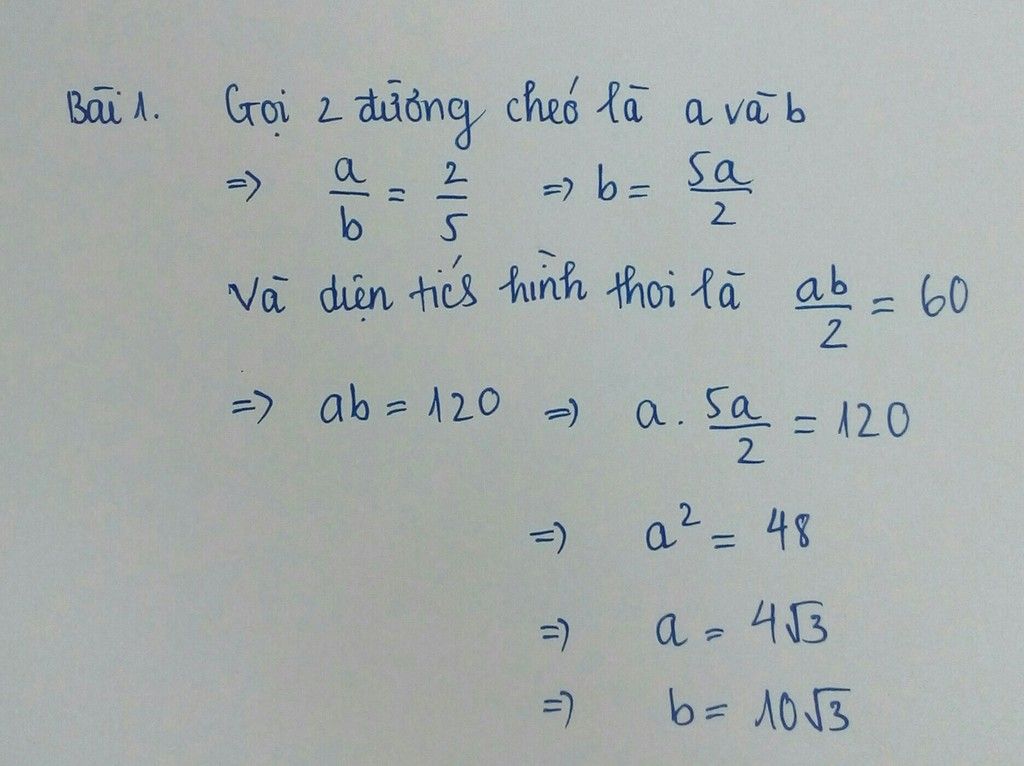 Bài 1. Gọi 2 đường chéo là a và b
=> a/b = 2/5 => b = 5a/2
Và diện tích hình thoi là ab/2 = 60
=> ab = 120 => a . 5a/2 = 120
=> a² = 48
=> a = 4√3
=> b = 10√3